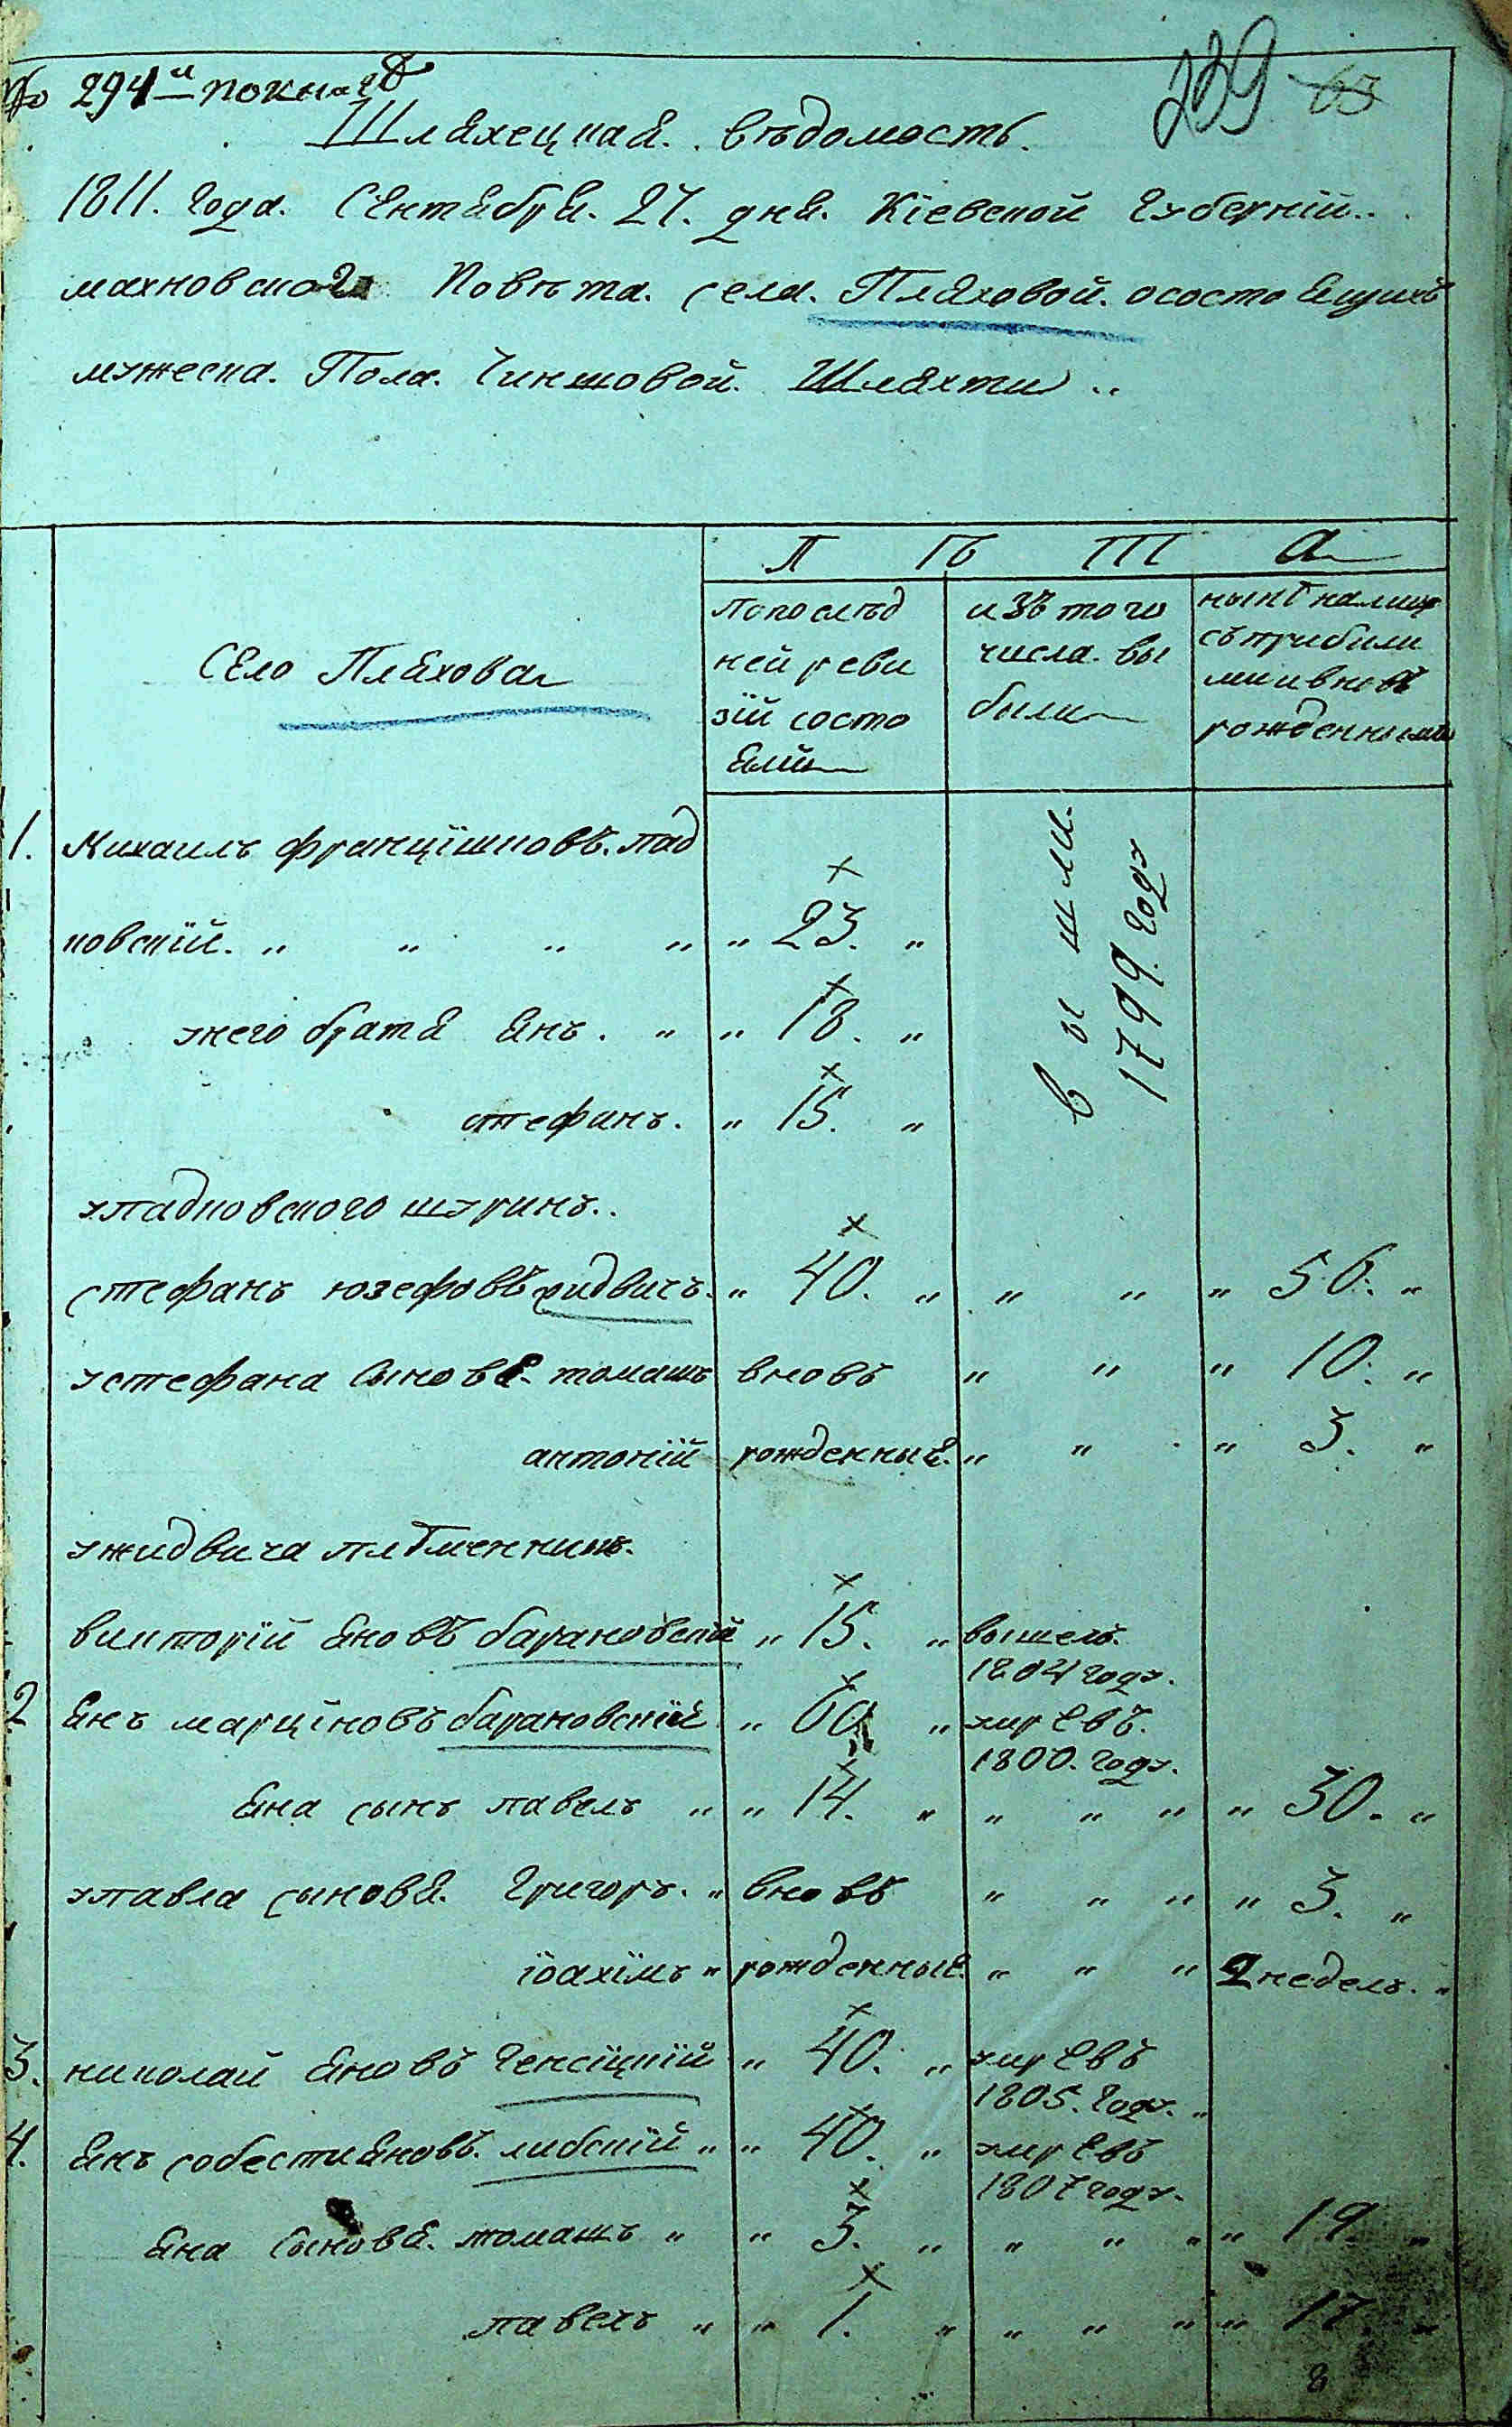 № 294й по книгѣ
239 63
Шляхецкая. вѣдомость.
1811. года. Сентября. 27. дня. Кіевской Губерніи..
махновского Повѣта. села. Пляховой. осостоящихъ
мужеска. Пола. Чиншовой. Шляхти..
Село Пляхова
Л ѣ т а
попослѣд
ней реви
зій состо
яли
изъ того
числа. вы
были
нынѣ налицо
съ прибили
ми ивновъ
рожденными
1. Михаилъ францїшковъ. пад
ковскїй. „ „ „ „ „ 23. „
вышли.
1799. году
унего братя янъ. „ „ 18. „
стефанъ. „ 15. „
упадковского шуринъ..
стефанъ юзефовъ жидвичъ. „ 40. „ „ „ „ 56. „
устефана сыновя. томашъ вновъ „ „ „ 10. „
антонїй рожденныя. „ „ „ 3. „
ужидвича плѣменникъ.
викторїй яновъ барановскїй „ 15. „ вышелъ.
1804 году.
2 янъ марцїновъ барановскїй „ 60 „ умревъ.
1800. году.
яна сынъ павелъ „ „ 14. „ „ „ „ „ 30. „
упавла сыновя. Григоръ. „ вновъ „ „ „ „ 3. „
їоахїмъ „ рожденныя. „ „ „ 2 недель. „
3. николай яновъ Генсїцкїй „ 40. „ умревъ
1805. году. „
4. янъ собестияновъ. либскїй „ „ 40. „ умревъ
1807 году.
яна сыновя. томашъ „ „ 3. „ „ „ „ „ 19. „
павелъ „ „ 1. „ „ „ „ „ 17. „
8